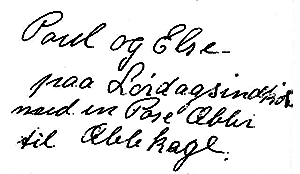 Poul og Else
paa Lørdagsindkøb
med en Pose Æbler
til Æblekage.